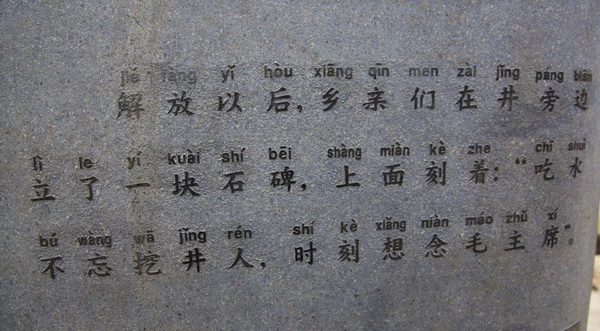 jiě fàng yǐ hòu xiāng qīn men zài jǐng páng biān
解放以后，乡亲们在井旁边
lì le yí kuài shí bēi shàng miàn kè zhe chī shuǐ
立了一块石碑，上面刻着：“吃水
bú wàng wā jǐng rén shí kè xiǎng niàn máo zhǔ xí
不忘挖井人，时刻想念毛主席”。